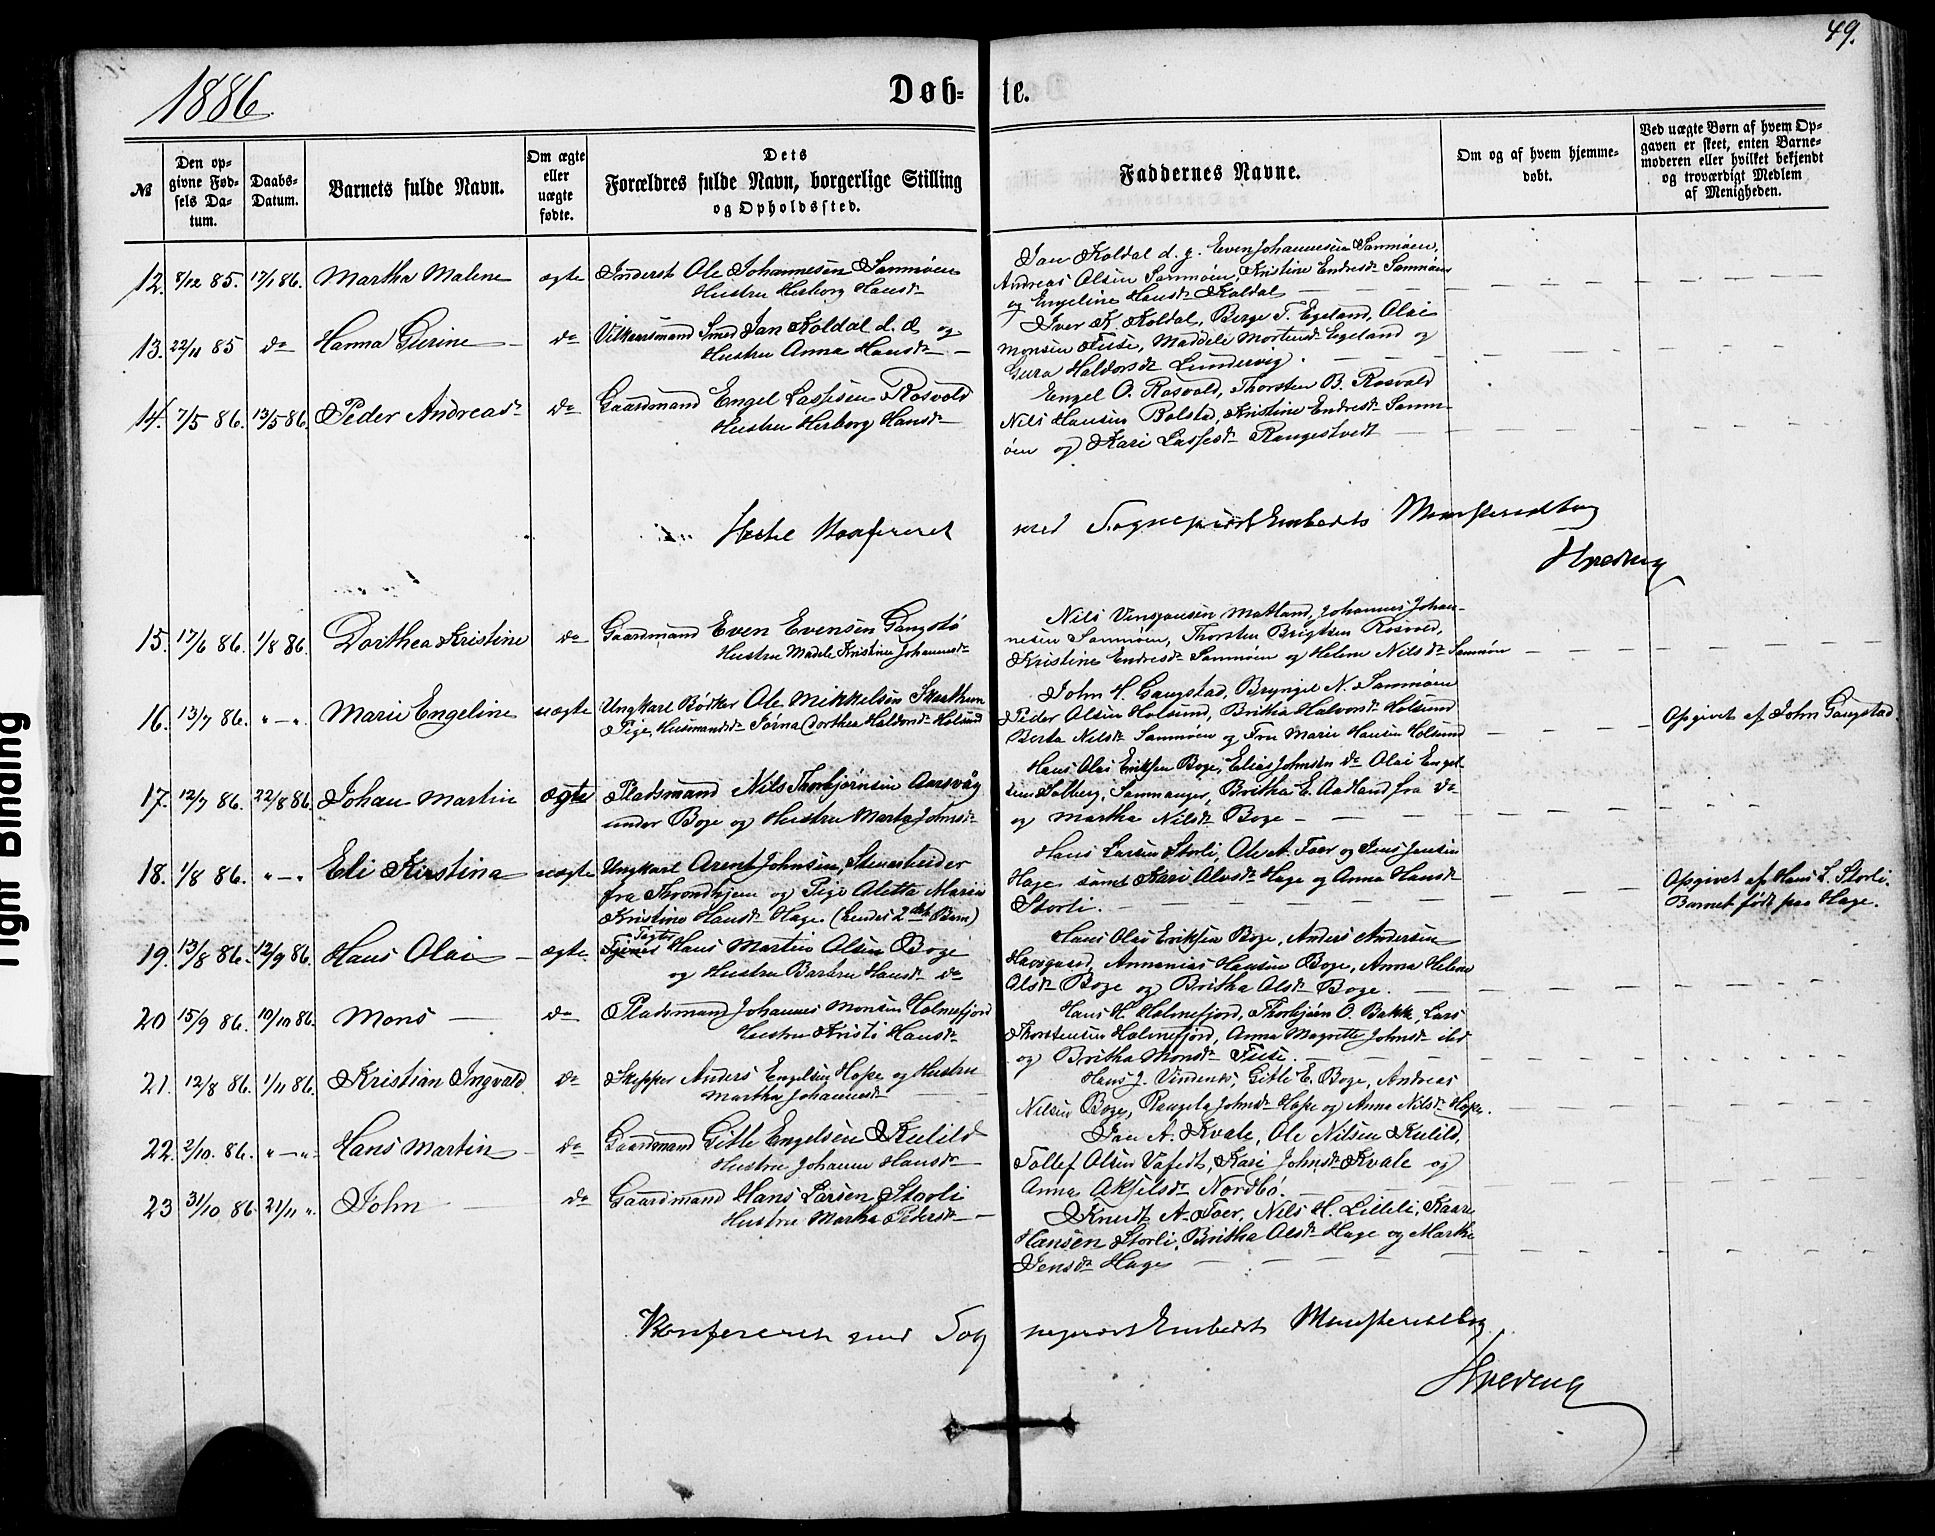 49.
1886.
Døb- te.
№
Den op-
givne Fød-
sels Da-
tum.
Daabs-
Datum.
Barnets fulde Navn.
Om ægte
eller
uægte
fødte.
Dets
Forældres fulde Navn, borgerlige Stilling
og Opholdssted.
Faddernes Navne.
Om og af hvem hjemme-
døbt.
Ved uægte Børn af hvem Op-
gaven er skeet, enten Barne-
moderen eller hvilket bekjendt
og troværdigt Medlem
af Menigheden.
12. 8/12 85. 17/1 86. Martha Malene ægte Inderst Ole Johannesen Samnøen
Hustru Herborg Hansdr
Jan Koldal d. y. Even Johannesen Samnøen,
Andreas Olsen Samnøen, Kristine Endresdr Samnøen
og Engeline Hansdr Koldal
13. 22/11 85 do Hanna Gurine do Vilkaarsmand Smed Jan Koldal d. æ og
Hustru Anna Hansdr
Iver K. Koldal, Berge T. Egeland, Olai
Monsen Fuse, Maddele Mortensdr Egeland og
Gura Haldorsdr Lundervig.
14. 7/5 86. 13/5 86. Peder Andreas do Gaardmand Engel Lassesen Rosvold
Hustru Herborg Hansdr
Engel O. Rosvold, Thorsten B. Rosvold
Nils Hansen Bolstad, Kristine Endresdr Samn-
øen og Kari Lassesdr Rangestvedt
Hertil Konfereret med Sogneprest Embedets Ministerialbog
Hvoding
15. 17/6 86. 1/8 86. Dorthea Kristine do Gaardmand Even Evensen Gangstø
Hustru Madele Kristine Johannesdr
Nils Vinsjansen Matland, Johannes Johan-
nesen Samnøen, Thorsten Brigtsen Rosvold,
Kristine Endresdr Samnøen og Helene Nilsdr Samnøen
16. 13/7 86. " — ". Marie Engeline uægte Ungkarl Bødker Ole Mikkelsen Skarthun
Pige, Husmandsdr Jørna Dorthea Haldorsdr Holsund
John H. Gangstad, Bryngel N. Samnøen
Peder Olsen Holsund, Britha Halvorsdr Holsund
Berta Nilsdr Samnøen og Fru Marie Hansen Holsund
Opgivet af John Gangstad.
17. 12/7 86. 22/8 86. Johan Martin ægte Pladsmand Nils Thorbjørnsen Aarsvåg
under Boge og Hustru Marta Johnsdr
Hans Olai Eriksen Boge, Elias Johnsen do Olai Engel-
sen Solberg, Samnanger, Britha E. Aadland fra do
og Martha Nilsdr Boge
18. 1/8 86. " — ". Eli Kirstina uægte Ungkarl Arent Johnsen, Stenarbeider
fra Throndhjem og Pige Aletta Marie
Kristine Hansdr Hage. (hendes 2det Barn)
Hans Larsen Storli, Ole A. Toer og Jens Jensen
Hage samt Kari Alvsdr Hage og Anna Hansdr
Storli.
Opgivet af Hans L. Storli.
Barnet født paa Hage.
19. 13/8 86. 12/9 86. Hans Olai ægte. Hans Martin Olsen Boge
og Hustru Barbru Hansdr do
Hans Olai Eriksen Boge, Anders Andersen
Havsgaard, Annanias Hansen Boge, Anna Helene
Olsdr Boge og Britha Olsdr Boge.
20 15/9 86. 10/10 86. Mons do Pladsmand Johannes Monsen Holmefjord
Hustru Kristi Hansdr
Hans H. Holmefjord, Thorbjørn O. Bakke, Lars
Thorstensen Holmefjord, Anna Magrette Johnsdr ibd
og Britha Monsdr Fuse.
21. 12/8 86. 1/11 86. Kristian Ingvald. do Skipper Anders Engelsen Hope og Hustru
Martha Johannesdr
Hans J. Vindenes, Gitle E. Boge, Andreas
Nilsen Boge, Rangela Johnsdr Hope og Anna Nilsdr Hope.
22. 2/10. 86. " — " Hans Martin do Gaardmand Gitle Engelsen Kulild
Hustru Johanne Hansdr
Jan A. Kvale, Ole Nilsen Kulild,
Tollef Olsen Vafedt, Kari Johnsdr Kvale og
Anna Akselsdr Nordbø.
23 31/10 86 21/11 ". John do Gaardmand Hans Larsen Storli
Hustru Martha Petersdr
Knudt A. Toer, Nils H. Lilleli, Kaare
Hansen Storli, Britha Olsdr Hage og Martha
Jensdr Hage
Konfereret med Sog neprest Embedets Ministerialbog.
Hvoding
Tight Binding